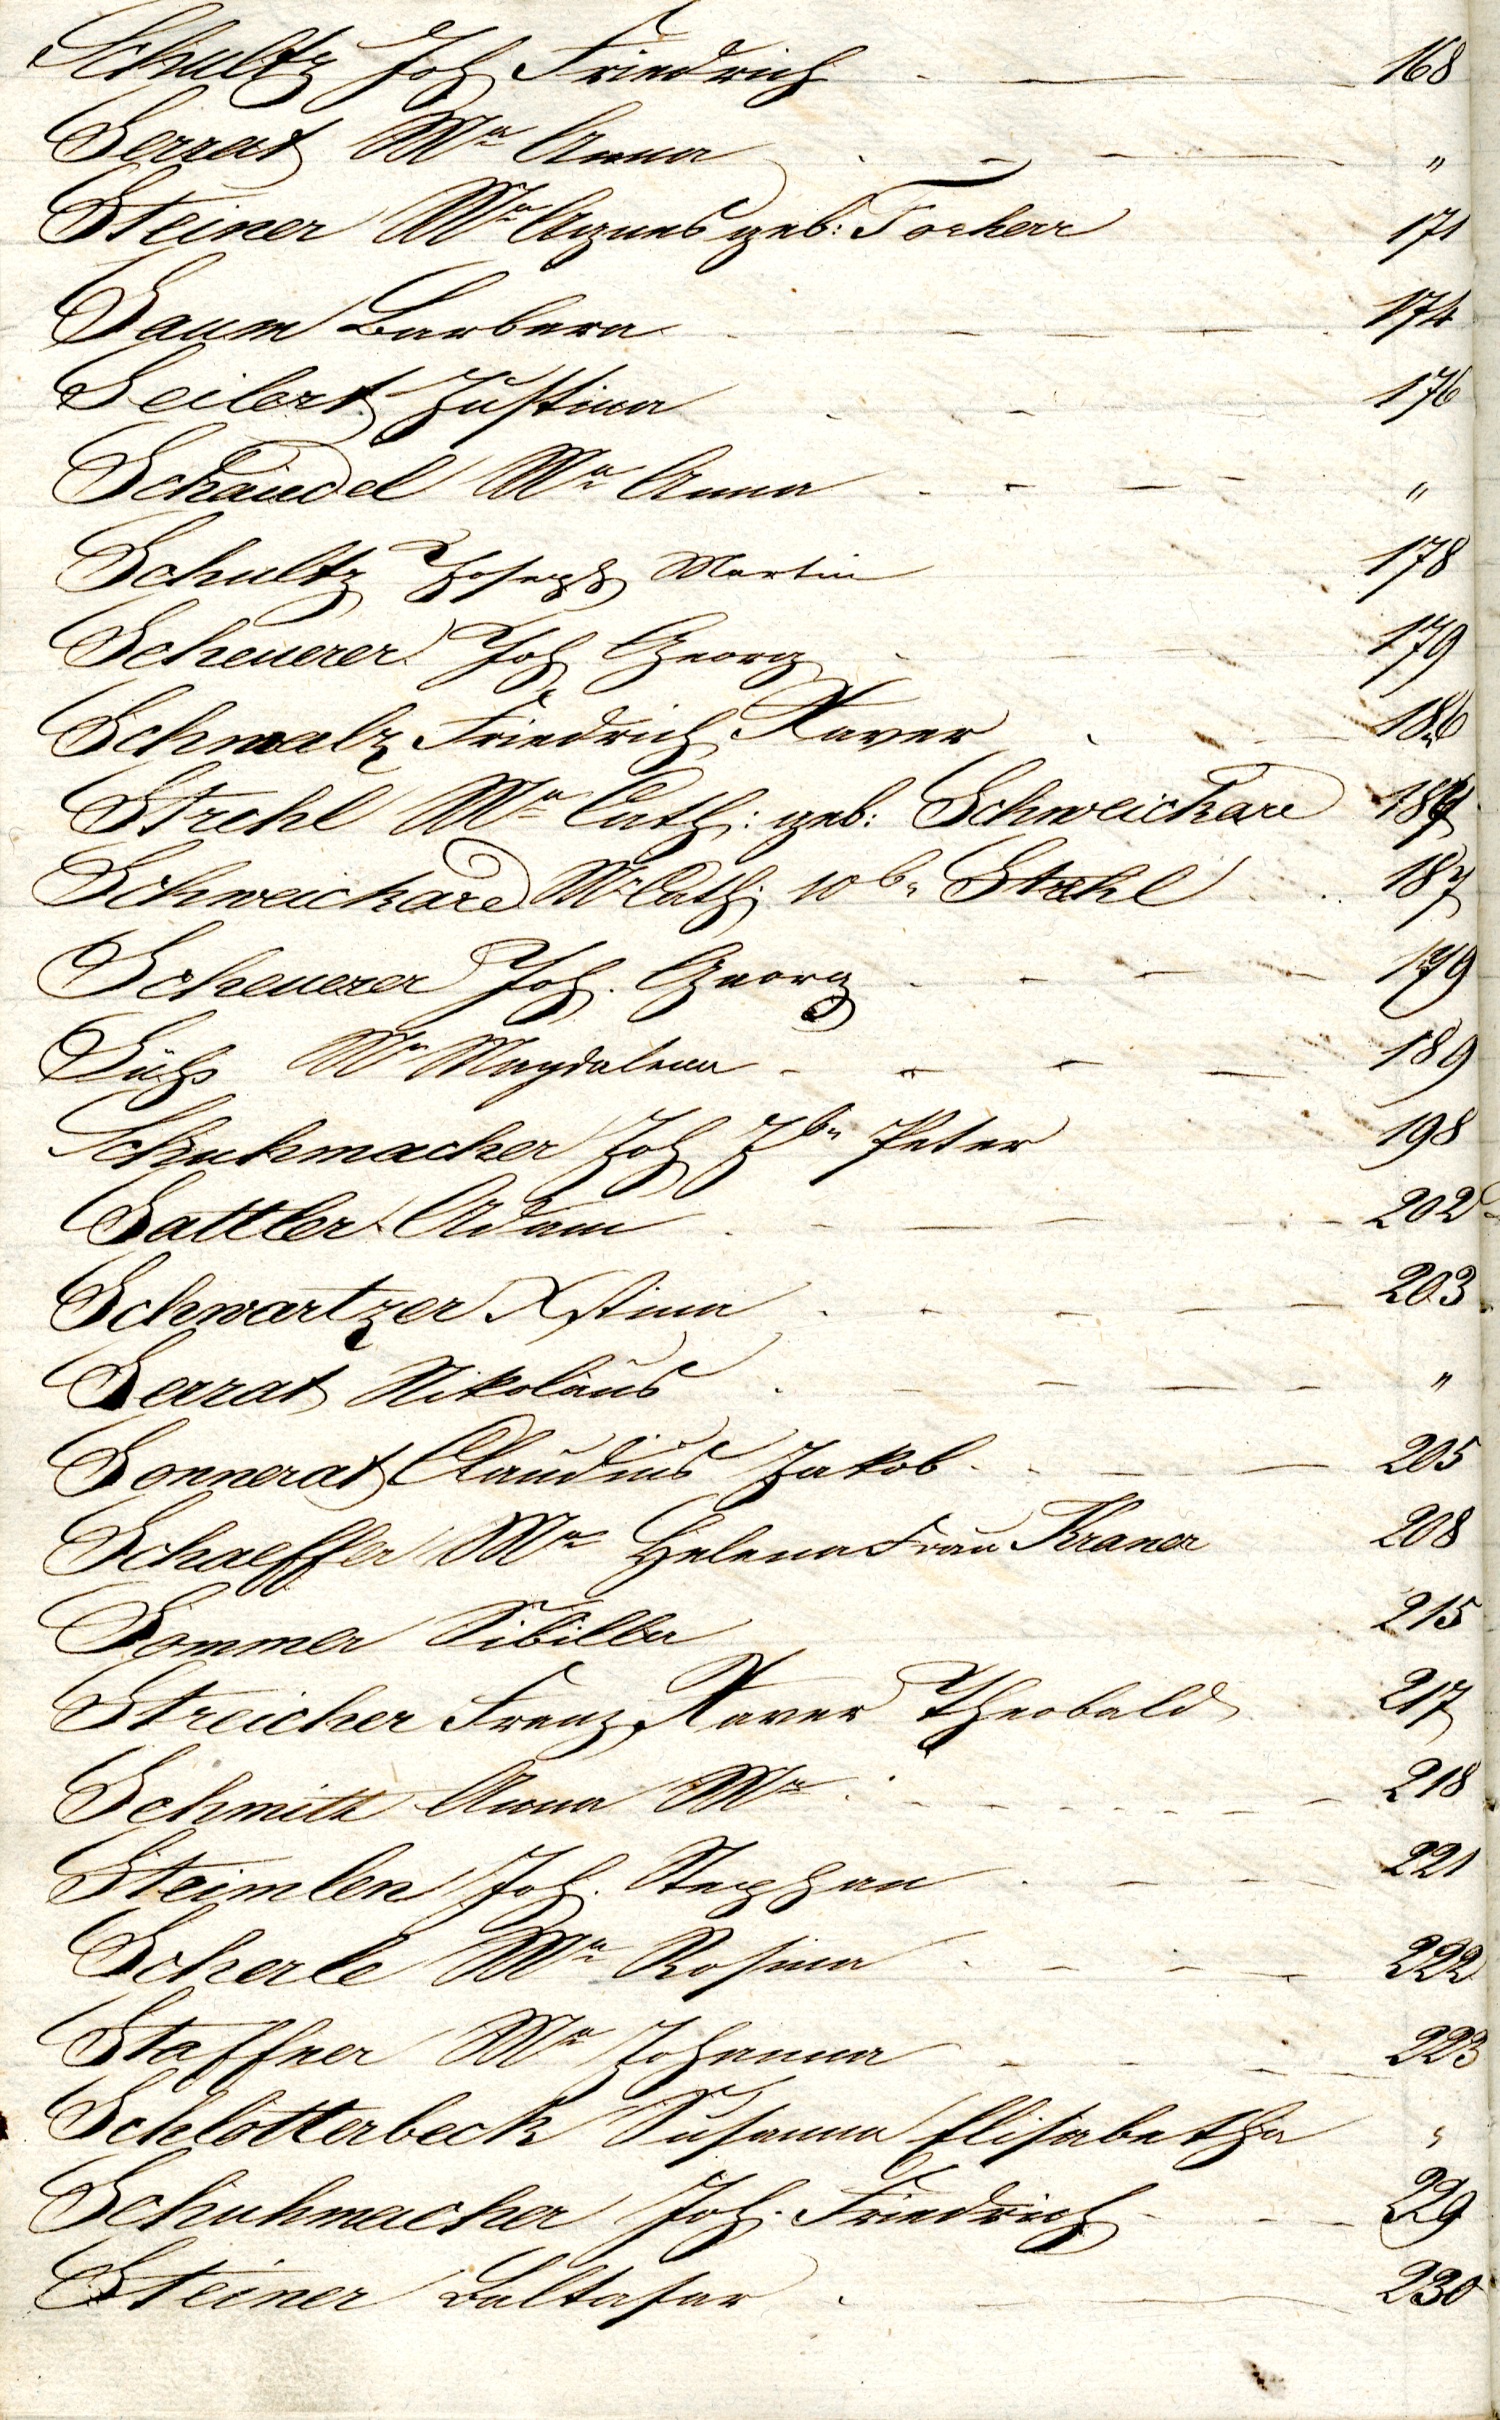 Schultz Joh Friedrich . — — — 168
Serrat Mª Anna . — — — "
Steiner Mª Agnes geb: Forherr 171
Saum Barbara . — — — 174
Seibert Justina . — — 176
Schaudel Mª Anna - - — — "
Schultz Joseph Martin 178
Scheuerer Joh Georg . — — 179
Schmalz Friedrich Xaver . — — 186
Strehl Mª Cath: geb: Schweickard 187
Schweickard M Cath: wbe Strehl . . 187
Scheuerer Joh. Georg . - — — 179
Süß Mª Magdalena - - - — 189
Schuhmacher Joh Bte Peter 198
Sattler Adam . - — — — 202
Schwartzer Xstina . - - — — 203
Serrat Nikolaus . - — — — "
Sonnerat Claudius Jakob . . — — 205
Schaeffer Mª Helena Frau Kraner 208
Sommer Sibilla 215
Streicher Franz Xaver Theobald 217
Schmitt Anna Mª . - - - - - 218
Steimlen Joh. Stephan . - — — 221
Scherle Mª Rosina . - - — 222
Staffner Mª Johanna - - - — 223
Schlotterbeck Susanna Elisabetha "
Schuhmacher Joh. Friedrich - - — 229
Steiner Baltasar . — — 230